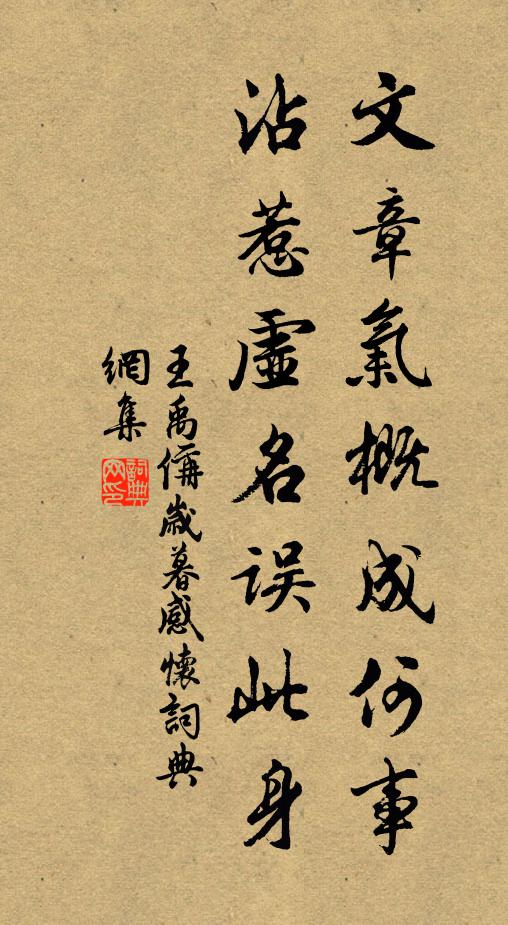 文章氣概成何事
沾惹虛名误此身
王禹偁歲暮感懷詞典
網集
詞典
网印